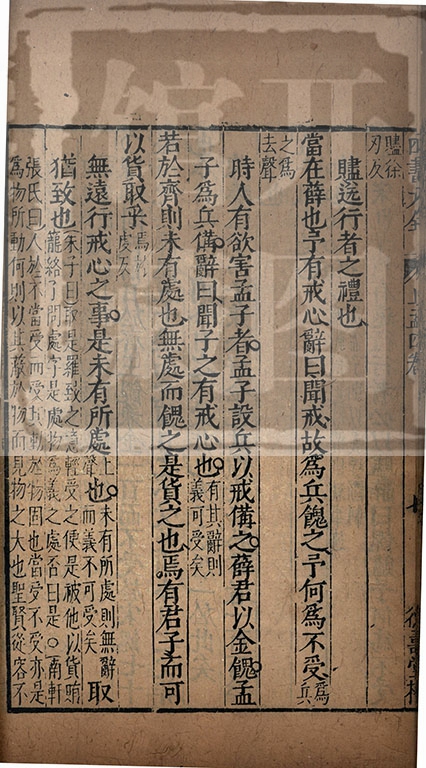 贐徐
刃反
贐送行者之禮也
當在薛也予有戒心辭曰聞戒故為兵餽之予何為不受為兵
之為
去聲
時人有欲害孟子者孟子設兵以戒備之薛君以金餽孟
子為兵備辭曰聞子之有戒心也有其辭則義可受矣
若於齊則未有處也無處而餽之是貨之也焉有君子而可
以貨取乎焉於虔反
無遠行戒心之事是未有所處上聲也未有所處則無辭而義不可受矣取
猶致也朱子曰取是羅致之意輕受之便是被他以貨賄籠絡了問處字是處物為義之處否曰是○南軒
張氏曰人於不當受而受其動於物固也當受不受亦是
為物所動何則以其蔽於物而見物之大也聖賢從容不